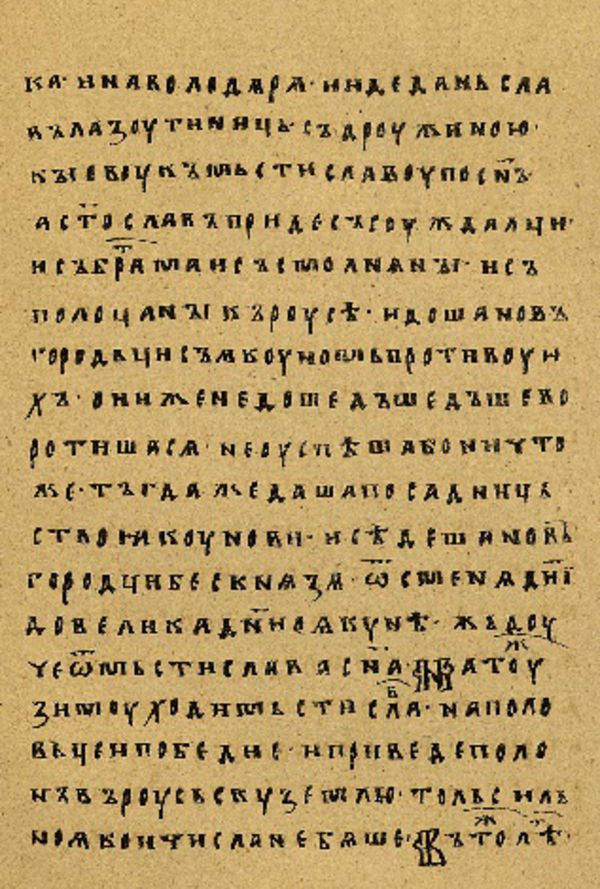 ка· и на володарѧ· и иде даньсла
въ лазоутиниць· съ дроужиною·
къıевоу къ мьстиславоу по сн҃ъ
а ст҃ославъ приде съ соуждалци·
и съ братома и съ смолнѧнꙑ· и съ
полоцанꙑ къ роусѣ· и доша новъ
городьци съ ꙗкоуномь противоу и
хъ· они же не дошедъшедъше во
ротишасѧ· не оуспѣша бо ничто
же· тъгда же даша посадниць
ство ꙗкоунови· и сѣдеша новъ
городци бес кнѧзѧ· ѿ сменѧ дн҃и
до велика дн҃и о ꙗкунѣ· жьдоу
че ѿ мьстислава сн҃а· въ тоу
зимоу ходи мьстислаⷡ· на поло
вьче и победи е· и приведе поло
нъ въ роусьскѹ землю· толь силь
но ꙗко и числа не бѧше· въ то лѣⷮ·